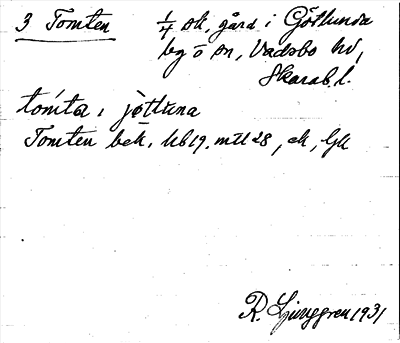 3 Tomten 1/4 sk, gård i Götlunda
by o sn, Vadsbo hd,
Skarab. l.
tomta i jötluna
Tomten bek. hb 19. mtl 28, ek, Gk
R. Ljunggren 1931